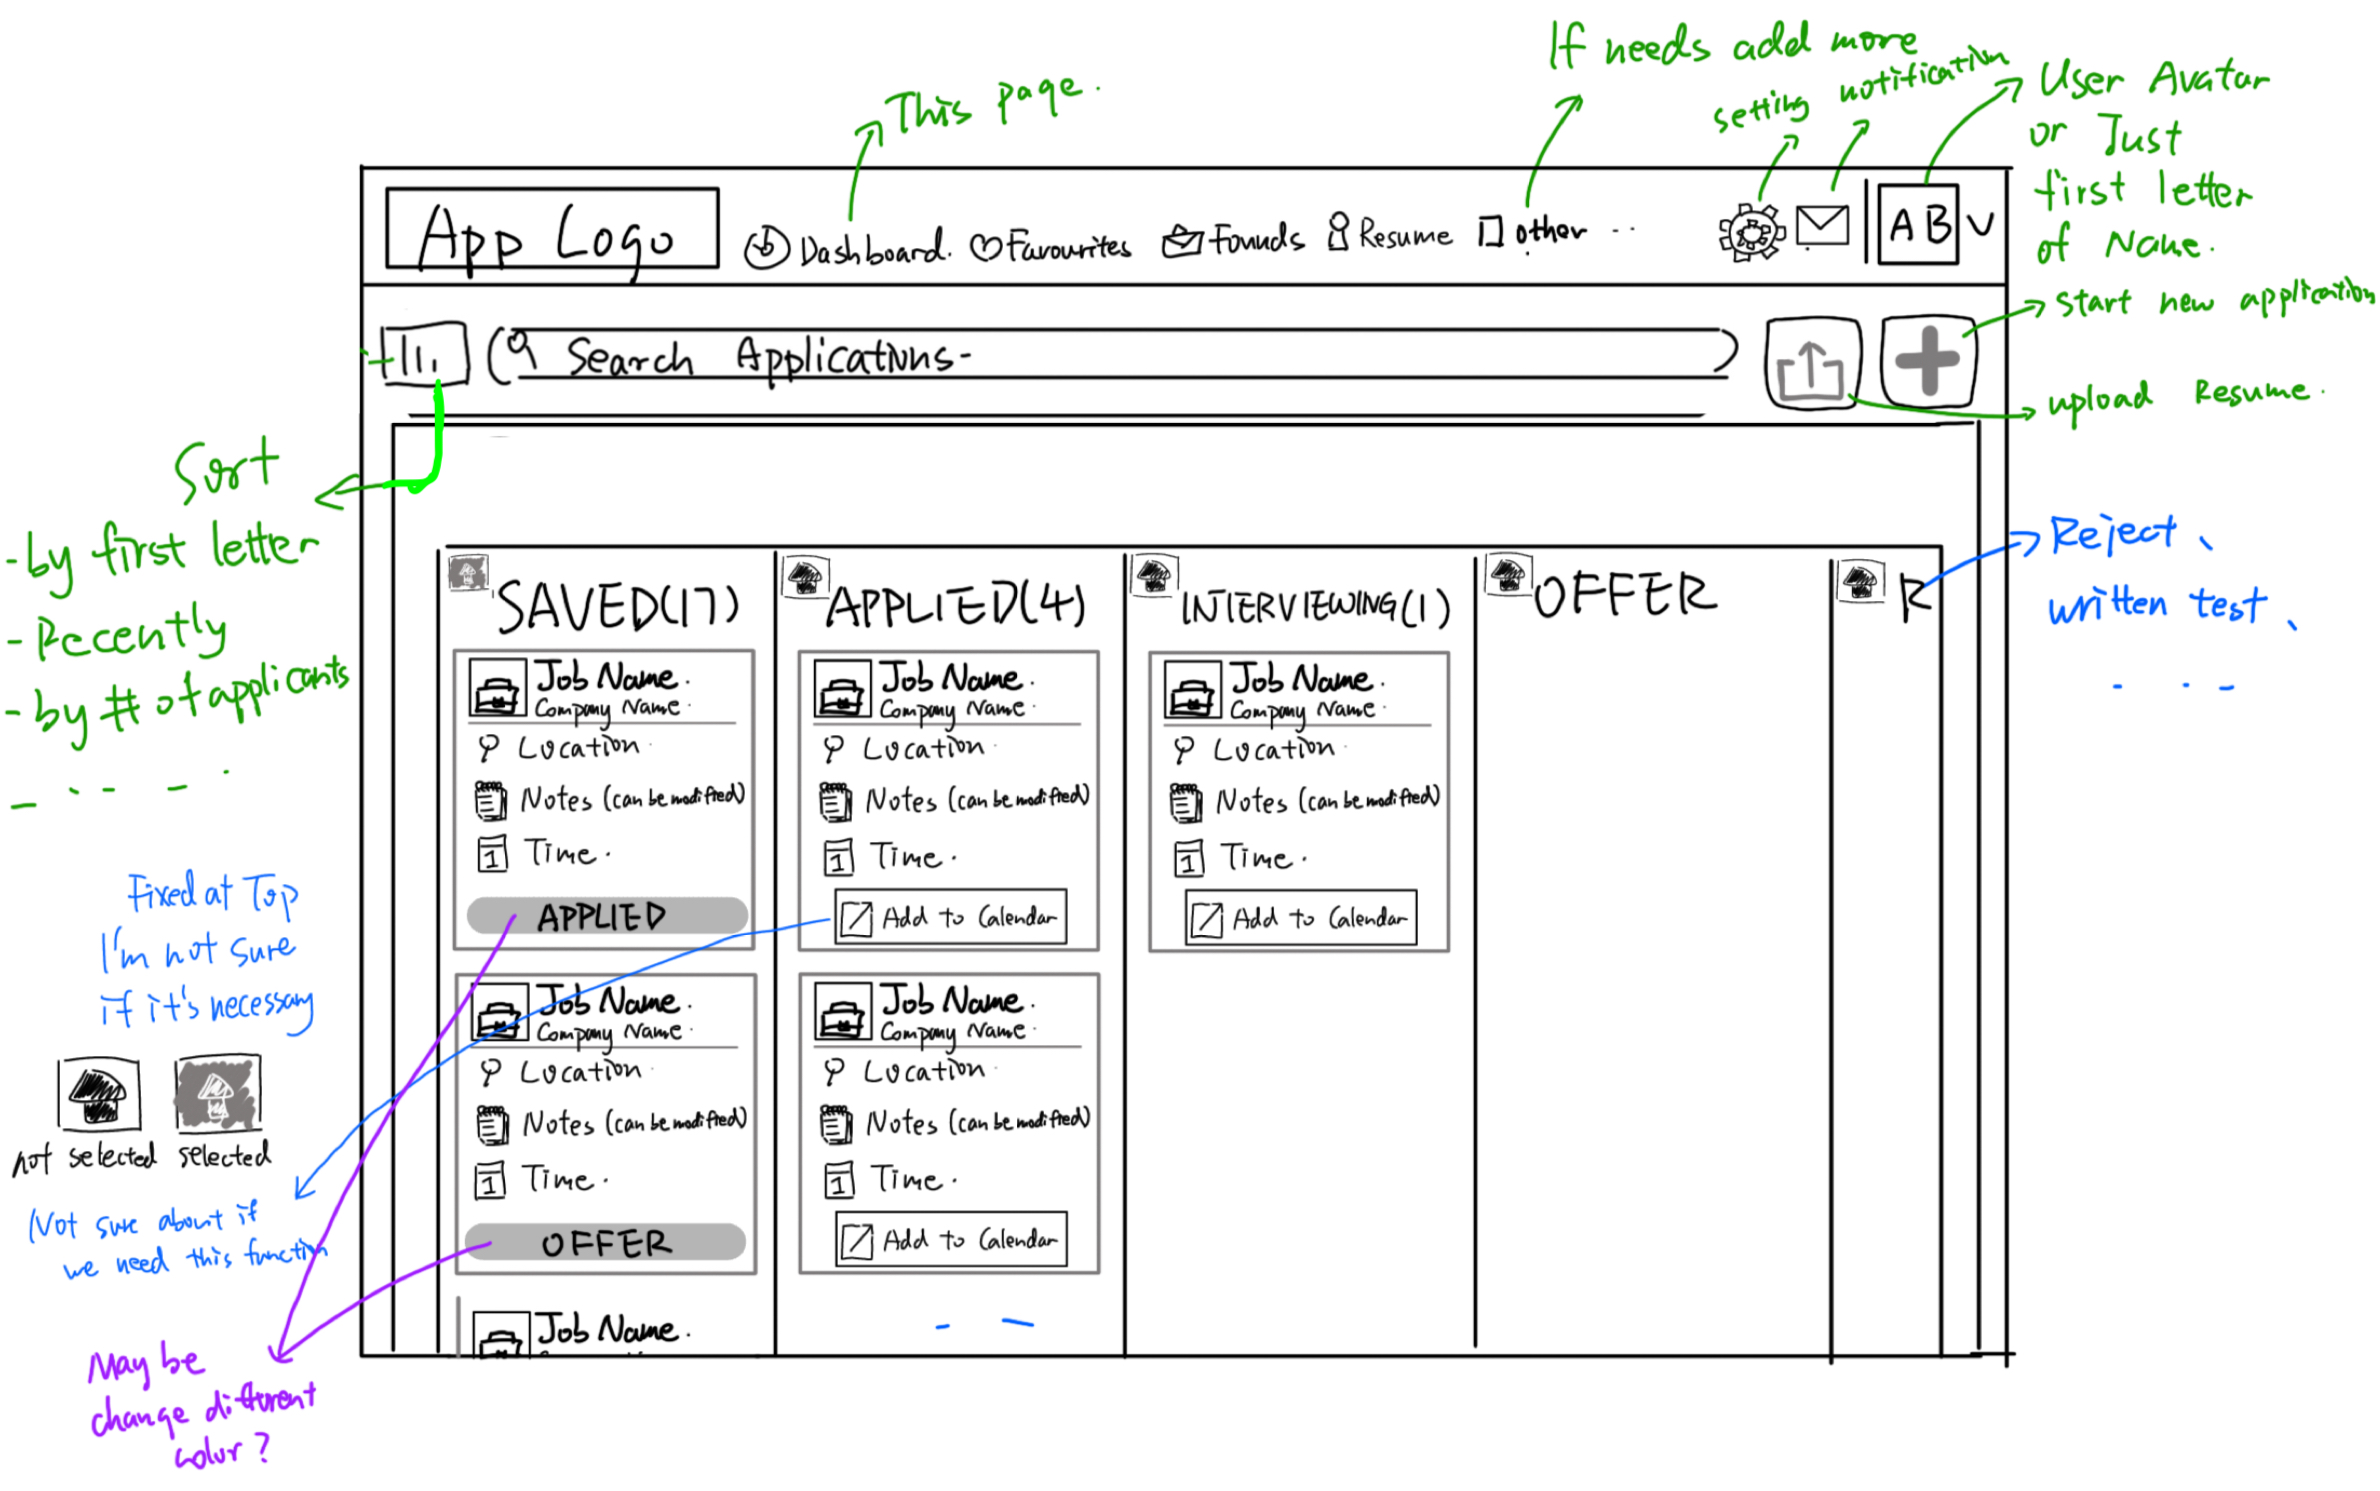 If needs add more
This page.
setting
notification
User Avatar
or Just
first letter
of Name.
App Logo
Dashboard.
Favourites
Founds
Resume
other ..
AB
start new application
Search Applications-
upload Resume.
Sort
-by first letter
-Recently
-by # of applicants
- . . - - .
Reject、
written test、
- - -
SAVED(17)
APPLIED(4)
INTERVIEWING(1)
OFFER
R
Job Name.
Company Name.
Location
Notes (can be modified)
1 Time.
APPLIED
Job Name.
Company Name.
Location
Notes (can be modified)
1 Time.
OFFER
Job Name.
Job Name.
Company Name.
Location
Notes (can be modified)
1 Time.
Add to Calendar
Job Name.
Company Name.
Location
Notes (can be modified)
1 Time.
Add to Calendar
- -
Job Name.
Company Name.
Location
Notes (can be modified)
1 Time.
Add to Calendar
Fixed at Top
I'm not sure
if it's necessary
not selected
selected
Not sure about if
we need this function
May be
change different
color?